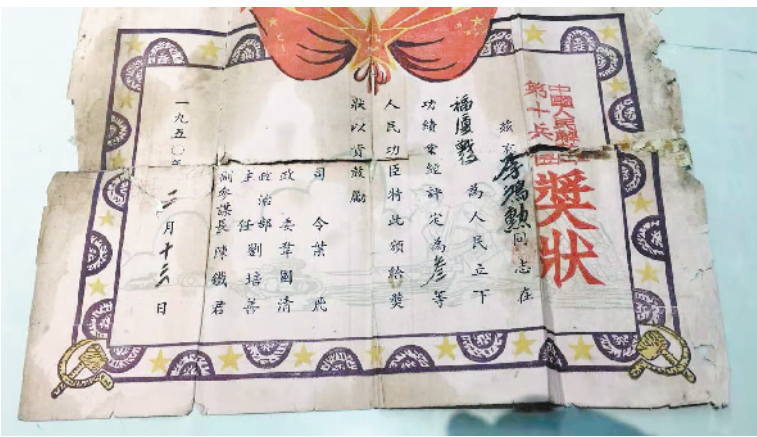 中國人民解放
第十兵團
獎狀
茲有李鴻勲同志在
福廈戰 為人民立下
功績業經評定為叁等
人民功臣特此頒給獎
狀以資鼓勵
司令葉飛
政委韋國清
政治部
主任劉培善
副參謀長陳鐵君
一九五〇年 二月十三日